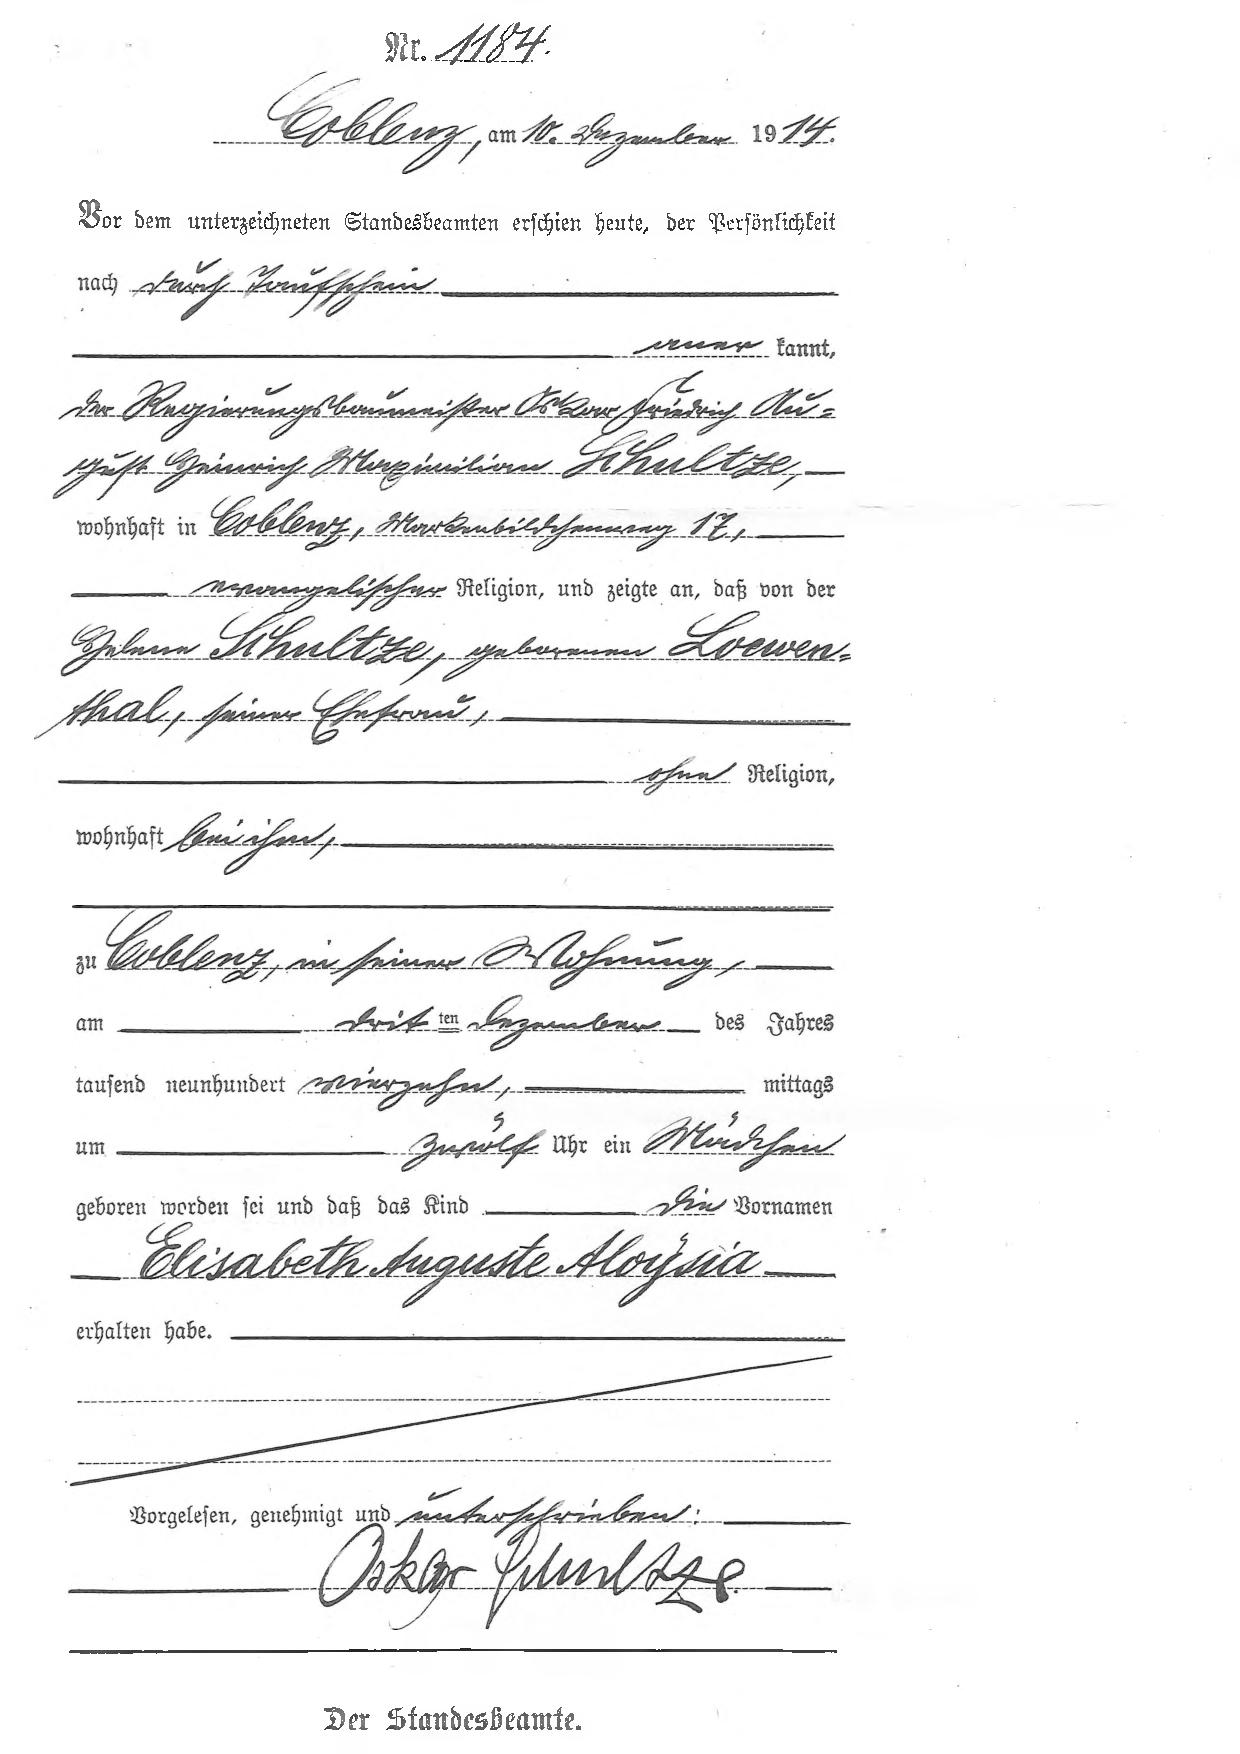 Nr. 1184.
Coblenz, am 10. Dezember 1914.
Vor dem unterzeichneten Standesbeamten erschien heute, der Persönlichkeit
nach durch Taufschein
aner kannt,
der Regierungsbaumeister Oskar Friedrich Au-
gust Heinrich Maximilian Schultze,
wohnhaft in Coblenz, Markenbildchenweg 17,
evangelischer Religion, und zeigte an, daß von der
Helene Schultze, geborenen Loewen-
thal, seiner Ehefrau,
ohne Religion,
wohnhaft bei ihm,
zu Coblenz, in seiner Wohnung,
am drit ten Dezember des Jahres
tausend neunhundert vierzehn, mittags
um zwölf Uhr ein Mädchen
geboren worden sei und daß das Kind die Vornamen
Elisabeth Auguste Aloÿsia
erhalten habe.
Vorgelesen, genehmigt und unterschrieben:
Oskar Schultze.
Der Standesbeamte.